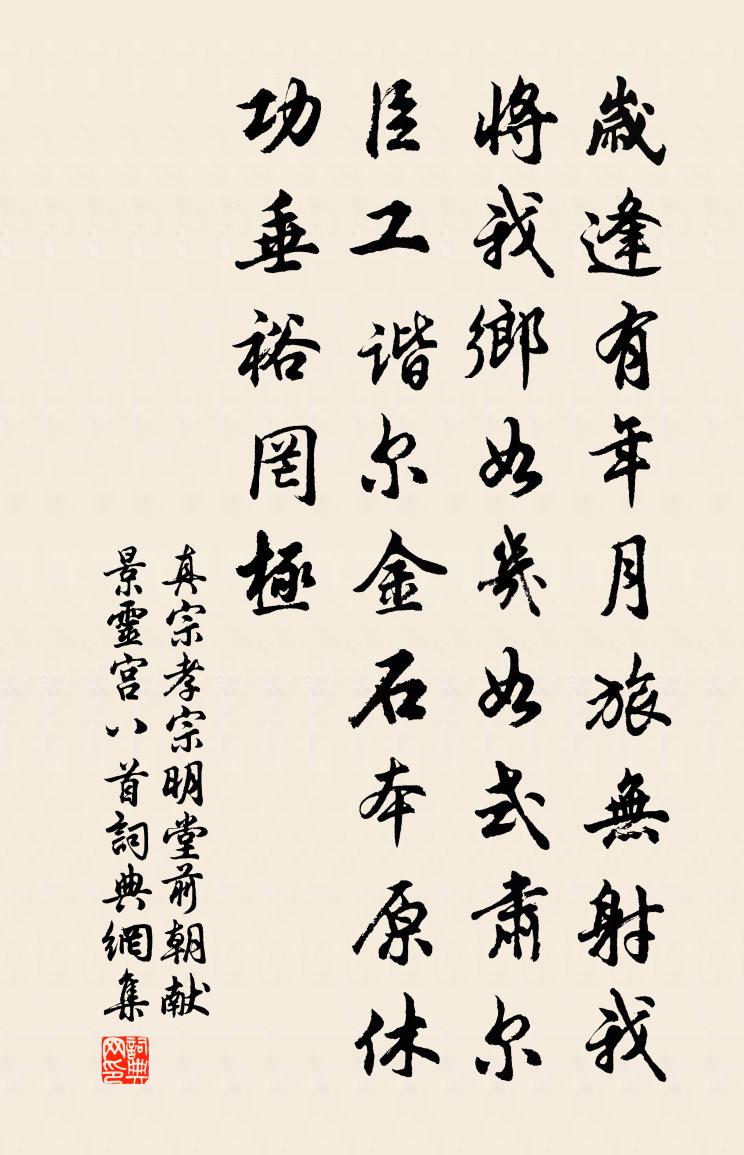 歲逢有年月旅無射我
將我鄉如幾如式肅尔
臣工谐尔金石本原休
功垂裕罔極
真宗孝宗明堂前朝献
景靈宮八首詞典網集
詞典网印